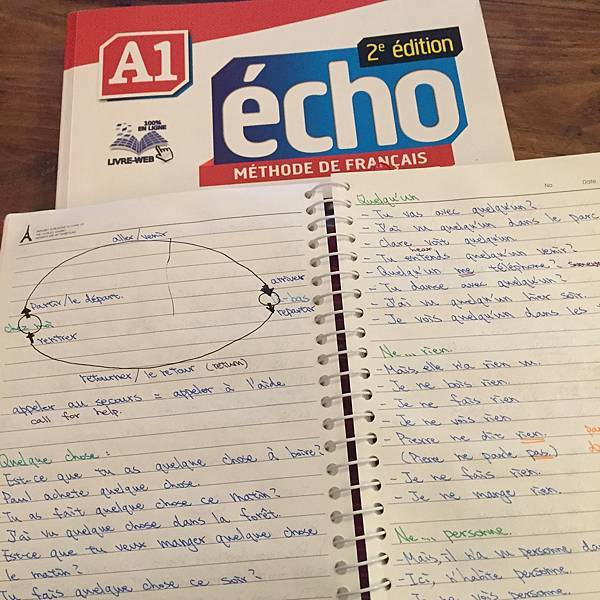 A1
écho
2e édition
100%
EN LIGNE
LIVRE-WEB
MÉTHODE DE FRANÇAIS
aller/venir
arriver
là-bas
repartir
partir/le départ.
chez moi
rentrer
retourner/le retour (return)
appeler au secours = appeler à l'aide
call for help.
Quelque chose :
Est-ce que tu as quelque chose à boire?
Paul achète quelque chose.
Tu as fait quelque chose ce matin?
J'ai vu quelque chose dans la forêt.
Est-ce que tu veux manger quelque chose
le matin?
Tu fais quelque chose ce soir?
No. Date
Quelqu'un
- Tu vas avec quelqu'un?
- J'ai vu quelqu'un dans le parc
- Clare voit quelqu'un
hear
- Tu entends quelqu'un venir?
- Quelqu'un me téléphone?
- Tu danse avec quelqu'un?
- J'ai vu quelqu'un hier soir.
- Je vois quelqu'un dans les
Ne... rien.
- Mais, elle n'a rien
- Je ne bois rien.
- Je ne fais rien
- Je ne vois rien
- Pierre ne dit rien.
(Pierre ne parle pas.)
- Je ne fais rien.
- Je ne mange rien.
Ne... personne.
- Mais, il n'a vu personne
- Ici, n'habite personne.
- Je ne vois personne